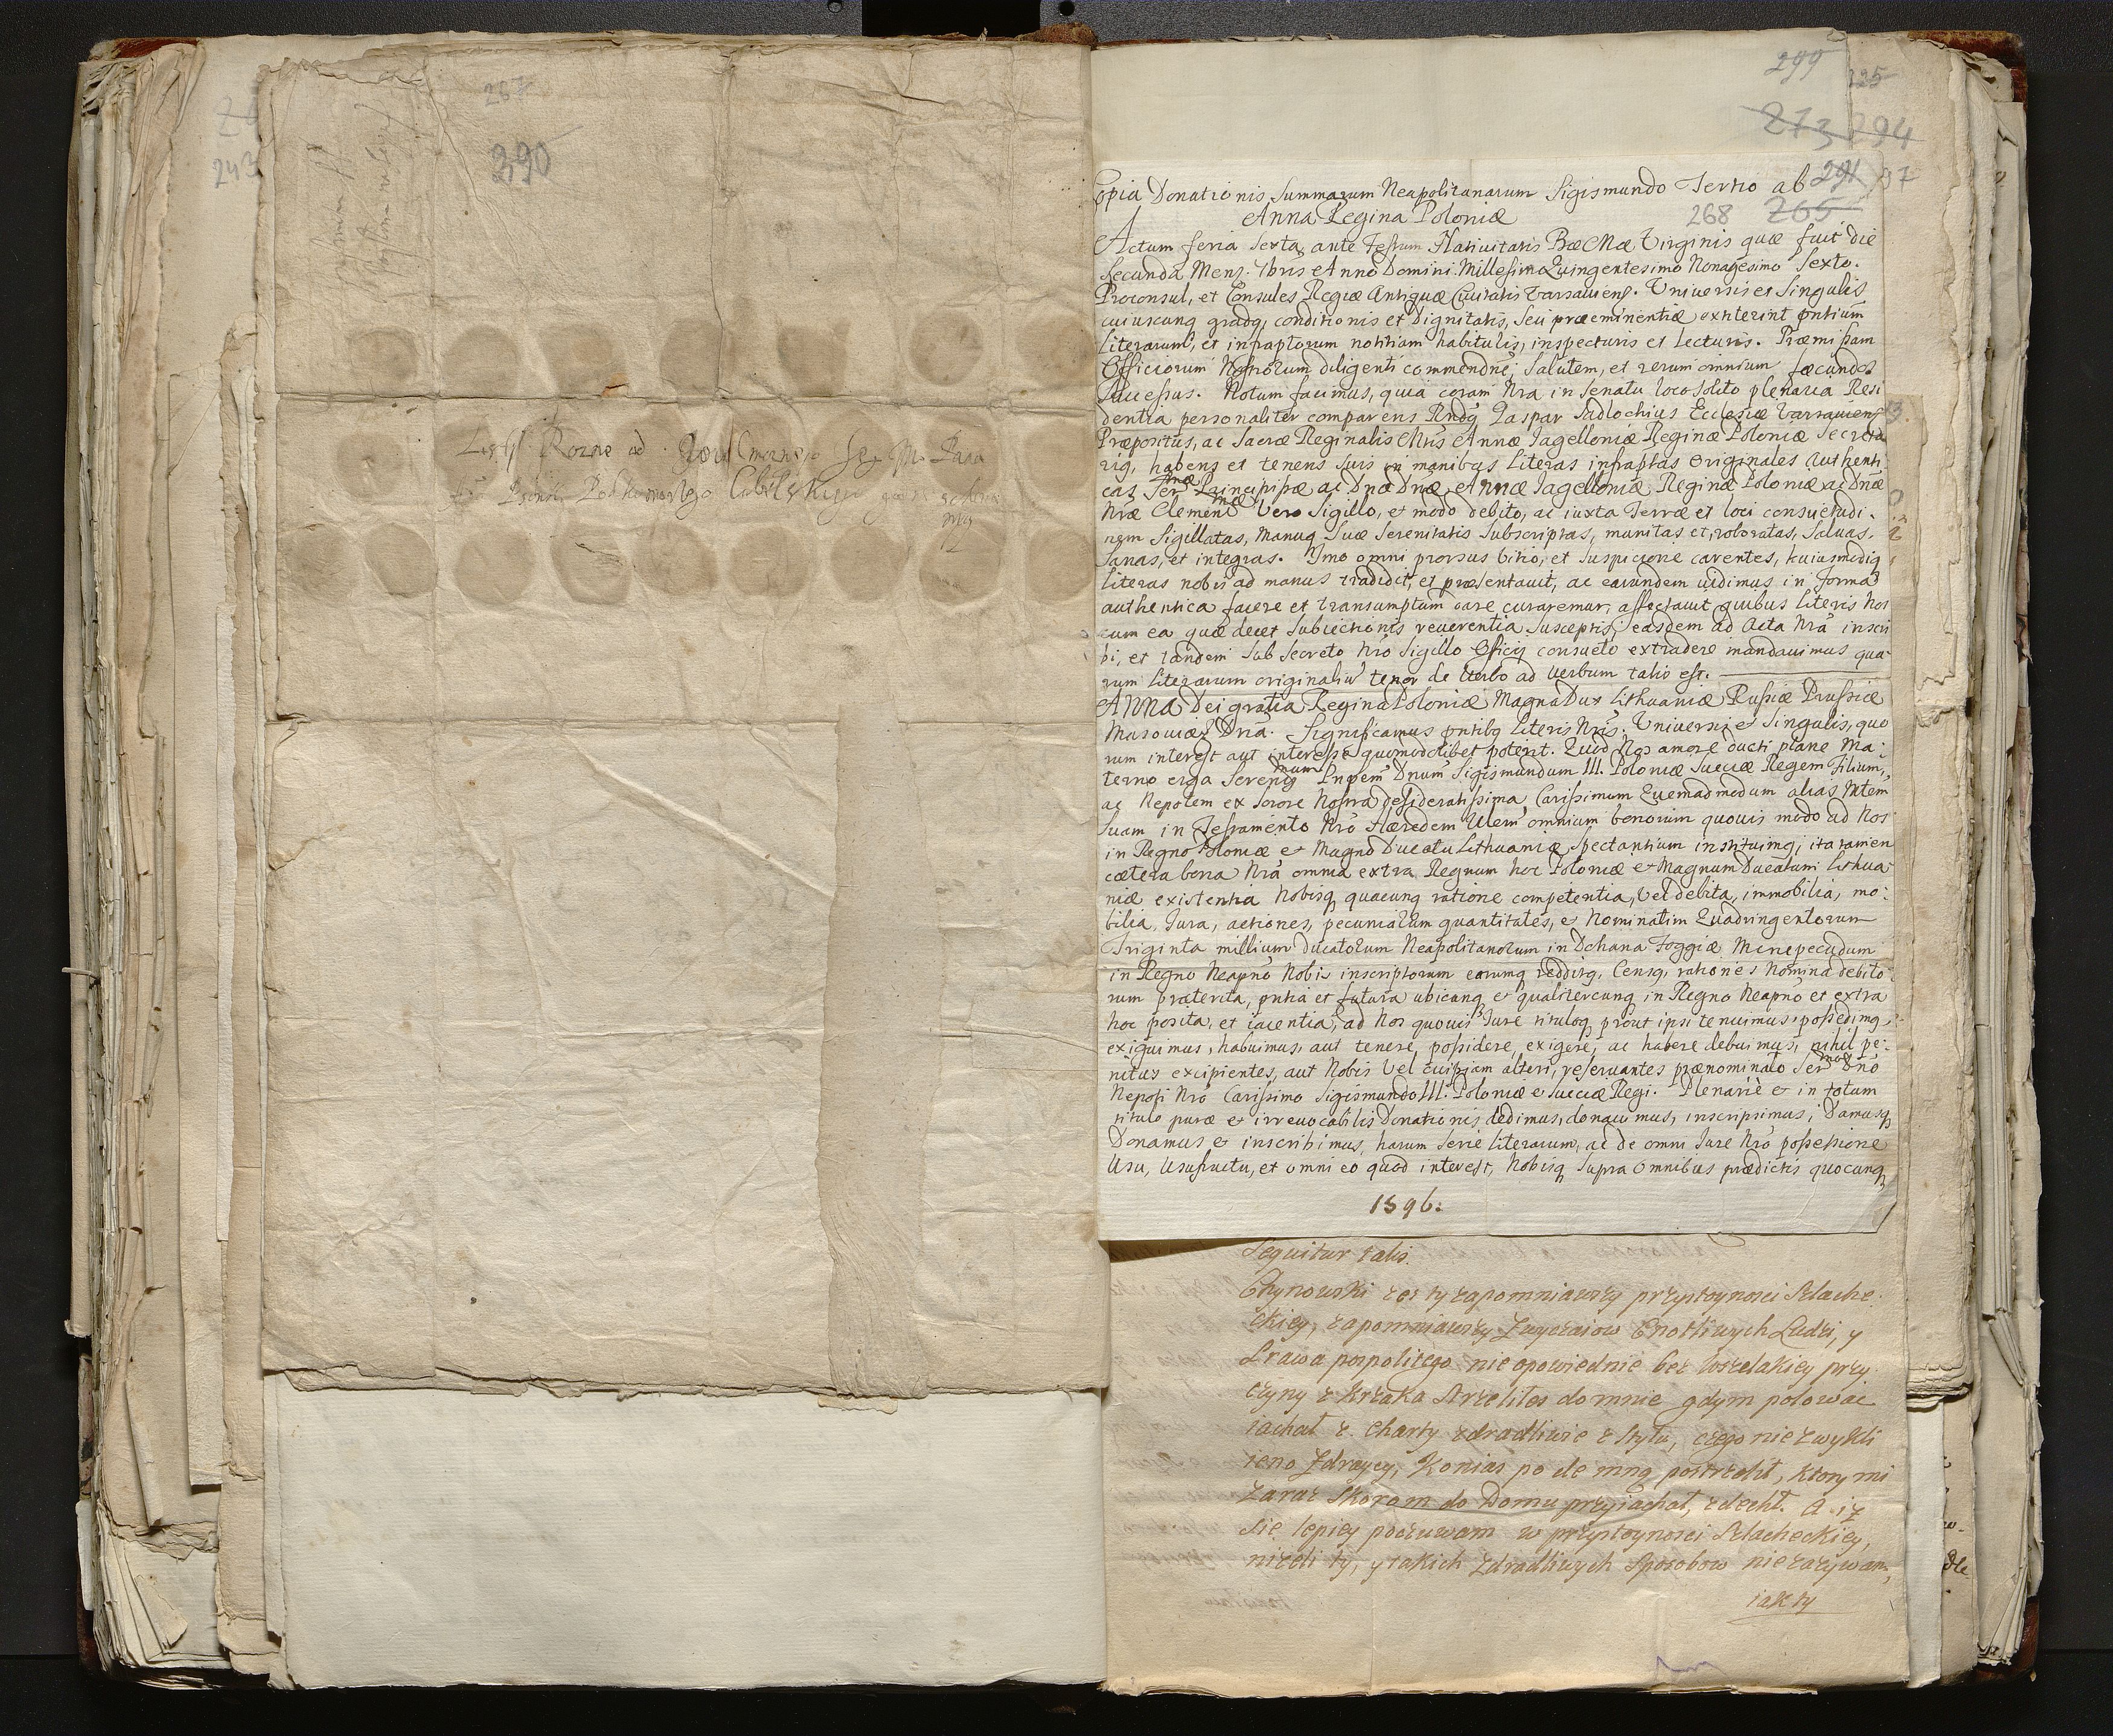 243
267
390
Listy Rozne od
299
125
273 294
291 97
Copia Donationis Summarum Neapolitanarum Sigismundo Tertio ab
Anna Regina Poloniæ
268 265
Actum feria Sexta ante Festum Natiuitatis BæMæ Virginis quæ fuit die
Secunda Mens. 7bris Anno Domini Millesimo Quingentesimo Nonagesimo Sexto.
Proconsul, et Consules Regiæ Antiquæ Ciuitatis Varsauiens. Vniuersis et Singulis
cuiuscunq gradq, conditionis et Dignitatis, seu præeminentiæ extiterint pntium
Literarum, et infraptorum notitiam habituris, inspecturis et lecturis. Præmissam
Officiorum Nostrorum diligenti commendne, Salutem, et rerum omnium fæcundos
Successus. Notum facimus, quia coram Nra in Senatu loco solito plenaria Resi
dentia personaliter comparens Rndq Gaspar Sadlochius Ecclesiæ Varsauiens
Præpositus, ac Sacræ Reginalis Mtis Annæ Jagelloniæ Reginæ Poloniæ Secreta
riq, habens et tenens suis in manibus Literas infraptas Originales Authenti
cas Ser næ Principissæ ac Dnæ Dnæ Annæ Jagelloniæ Reginæ Poloniæ ac Dnæ
Nræ Clemen mæ Vero Sigillo, et modo debito, ac iuxta Terræ et loci consuetudi.
nem Sigillatas, Manuq Suæ Serenitatis Subscriptas, munitas et roboratas, Saluas.
Sanas, et integras. Imo omni prorsus vitio, et Suspicione carentes, huiusmodiq
Literas nobis ad manus tradidit, et præsentauit, ac earundem uidimus in forma
authentica facere et transumptum dare curaremur, affectauit quibus Literis Nos
cum ea quæ decet Subiectionis reuerentia Susceptis, easdem ad Acta Nra inscri
bi, et tandem Sub Secreto Nro Sigillo Officij consueto extradere mandauimus qua
rum Literarum originaliu tenor de Verbo ad Verbum talis est.
ANNA Dei gratia Regina Poloniæ Magna Dux Lithuaniæ Russiæ Prussiæ
Masouiæ & Dna. Significamus pntibq Literis Nris. Vniuersis et Singulis, quo
rum interest aut interesse quomodolibet poterit. Quod Nos amore ducti plane Ma:
terno erga Sereniss mum Pnpem Dnum Sigismundum III. Poloniæ Sueciæ Regem Filium,
ac Nepotem ex Sorore Nostra desideratissima, Carissimum Quemadmodum alias Mtem
Suam in Testamento Nro Hæredem Verm omnium bonorum quouis modo ad Nos
in Regno Poloniæ et Magno Ducatu Lithuaniæ Spectantium instituimq, ita tamen
cætera bona Nra omnia extra Regnum hoc Poloniæ et Magnum Ducatum Lithua
niæ existentia Nobisq quacunq ratione competentia, vel debita, immobilia, mo:
bilia, Iura, actiones, pecuniarum quantitates, et Nominatim Quadringentorum
Triginta millium Ducatorum Neapolitanorum in Dohana Foggiæ Menepecudum
in Regno Neapno Nobis inscriptorum earumq redditq, Censq, rationes Nomina debito
rum præterita, pntia et futura ubicunq et qualitercunq in Regno Neapno et extra
hoc posita, et iacentia, ad Nos quouis Iure tituloq prout ipsi tenuimus, possedimq,
exiguimus, habuimus, aut tenere, possidere, exigere, ac habere debuimus, nihil pe:
nitus excipientes, aut Nobis Vel cuipiam alteri, reservantes prænominato Ser mo Dno
Nepoti Nro Carissimo Sigismundo III. Poloniæ et Sueciæ Regi. Plenariè et in totum
titulo puræ et irreuocabilis Donationis dedimus, donauimus, inscripsimus, Damusq
Donamus et inscribimus, harum Serie Literarum, ac de omni Iure Nro possessione
Usu, Usufructu, et omni eo quod interest, Nobisq Supra omnibus prædictis quocunq
1596:
Sequitur talis.
Chynowski zes ty zapomniawszy przystoynosci Slache
ckiey, zapomniawszy Zwyczaiow Cnotliwych Ludzi, y
Prawa pospolitego nie opowiednie bez wszelakiey przy
czyny z Krzaka Strzeliłes do mnie gdym polowac
iachał z Charty zdradliwie z tyłu, czego nie zwykli
ieno Zdraycy, Konias po de mną postrzelił, ktory mi
Zaraz skorom do Domu przyiachał, zdechł. A iz
się lepiey poczuwam w przystoynosci Slacheckiey,
nizeli ty, y takich Zdradliwych Sposobow nie zazywam,
iak ty